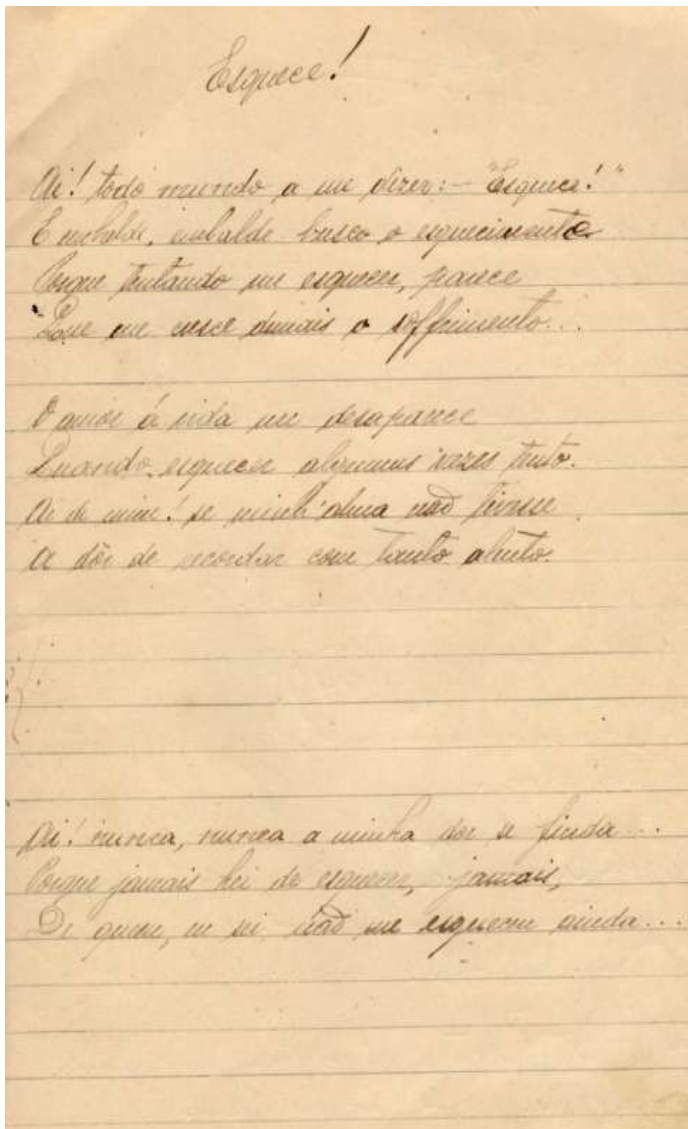 Esquece!
Ai! todo mundo a me dizer: - "Esquece!"
E embalde, embalde busco o esquecimento
Porque tentando me esquecer, parece
Que me cresce demais o soffrimento...
O amor á vida me desaparece
Quando esquecer algumas vezes tento.
Ai de mim! se minh'alma não tivesse
A dôr de recordar com tanto alento.
Ai! nunca, nunca a minha dor se finda...
Porque jamais hei de esquecer, jamais,
De quem, eu sei, não me esqueceu ainda...